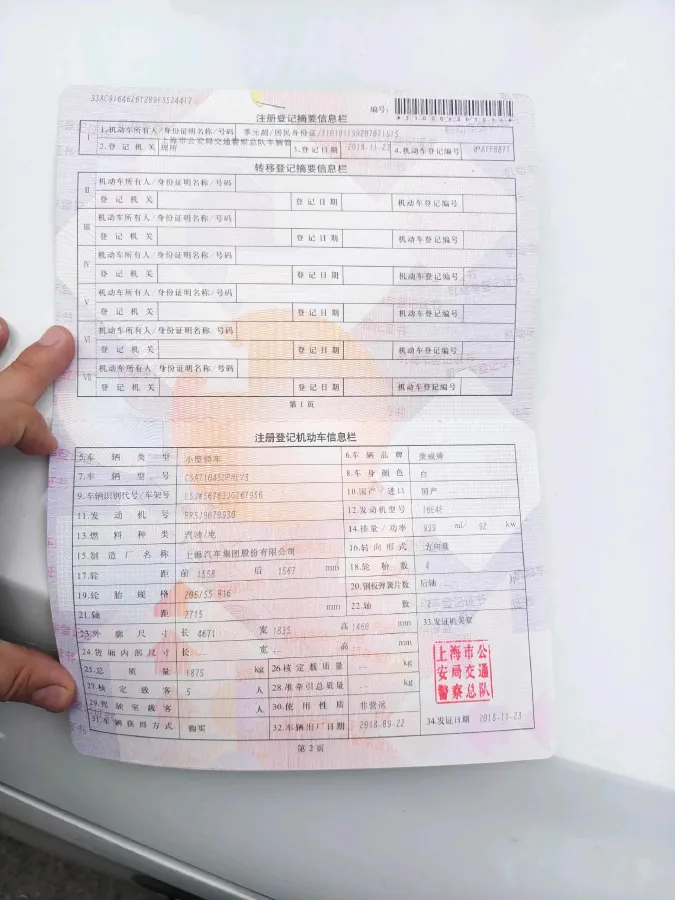 编号:
注册登记摘要信息栏
I 1.机动车所有人/身份证明名称/号码 /居民身份证/
2.登记机关 上海市公安局交通警察总队车辆管理所 3.登记日期 2018-11-23 4.机动车登记编号
转移登记摘要信息栏
II 机动车所有人/身份证明名称/号码
登记机关 登记日期 机动车登记编号
III 机动车所有人/身份证明名称/号码
登记机关 登记日期 机动车登记编号
IV 机动车所有人/身份证明名称/号码
登记机关 登记日期 机动车登记编号
V 机动车所有人/身份证明名称/号码
登记机关 登记日期 机动车登记编号
VI 机动车所有人/身份证明名称/号码
登记机关 登记日期 机动车登记编号
VII 机动车所有人/身份证明名称/号码
登记机关 登记日期 机动车登记编号
第1页
注册登记机动车信息栏
5.车辆类型 小型轿车 6.车辆品牌 荣威牌
7.车辆型号 8.车身颜色 白
9.车辆识别代号/车架号 10.国产/进口 国产
11.发动机号 12.发动机型号 16E4E
13.燃料种类 汽油/电 14.排量/功率 999 ml/ 92 kw
15.制造厂名称 上海汽车集团股份有限公司 16.转向形式 方向盘
17.轮距 前 1558 后 1567 mm 18.轮胎数 4
19.轮胎规格 205/55 R16 20.钢板弹簧片数 后轴 -- 片
21.轴距 2715 mm 22.轴数 2
23.外廓尺寸 长 4671 宽 1835 高 1460 mm 33.发证机关章
24.货厢内部尺寸 长 -- 宽 -- 高 -- mm
25.总质量 1875 kg 26.核定载质量 -- kg
27.核定载客 5 人 28.准牵引总质量 -- kg
29.驾驶室载客 -- 人 30.使用性质 非营运
31.车辆获得方式 购买 32.车辆出厂日期 2018-09-22 34.发证日期 2018-11-23
上海市公
安局交通
警察总队
第2页